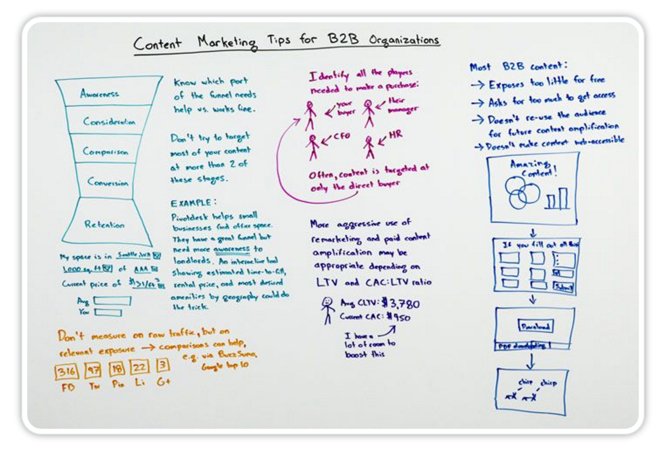 Content Marketing Tips for B2B Organizations
Awareness
Consideration
Comparison
Conversion
Retention
My space is in Seattle, WA
1,000 sq. ft. of AAA
Current price of $31/ft²
Avg
You
Know which part
of the funnel needs
help vs. works fine.
Don't try to target
most of your content
at more than 2 of
these stages.
EXAMPLE:
Pivotdesk helps small
businesses find office space.
They have a great funnel but
need more awareness to
landlords. An interactive tool
showing estimated time-to-fill,
rental price, and most desired
amenities by geography could do
the trick.
Don't measure on raw traffic, but on
relevant exposure → comparisons can help,
e.g. via BuzzSumo,
Google top 10
316 97 18 22 3
FB Tw Pin Li G+
Identify all the players
needed to make a purchase:
your
buyer
their
manager
CFO
HR
Often, content is targeted at
only the direct buyer
More aggressive use of
remarketing and paid content
amplification may be
appropriate depending on
LTV and CAC:LTV ratio
Avg CLTV: $3,780
Current CAC: $950
I have a
lot of room to
boost this
Most B2B content:
→ Exposes too little for free
→ Asks for too much to get access
→ Doesn't re-use the audience
for future content amplification
→ Doesn't make content web-accessible
Amazing
Content!
If you fill out all this
Submit
Download
PDF downloading
chirp chirp